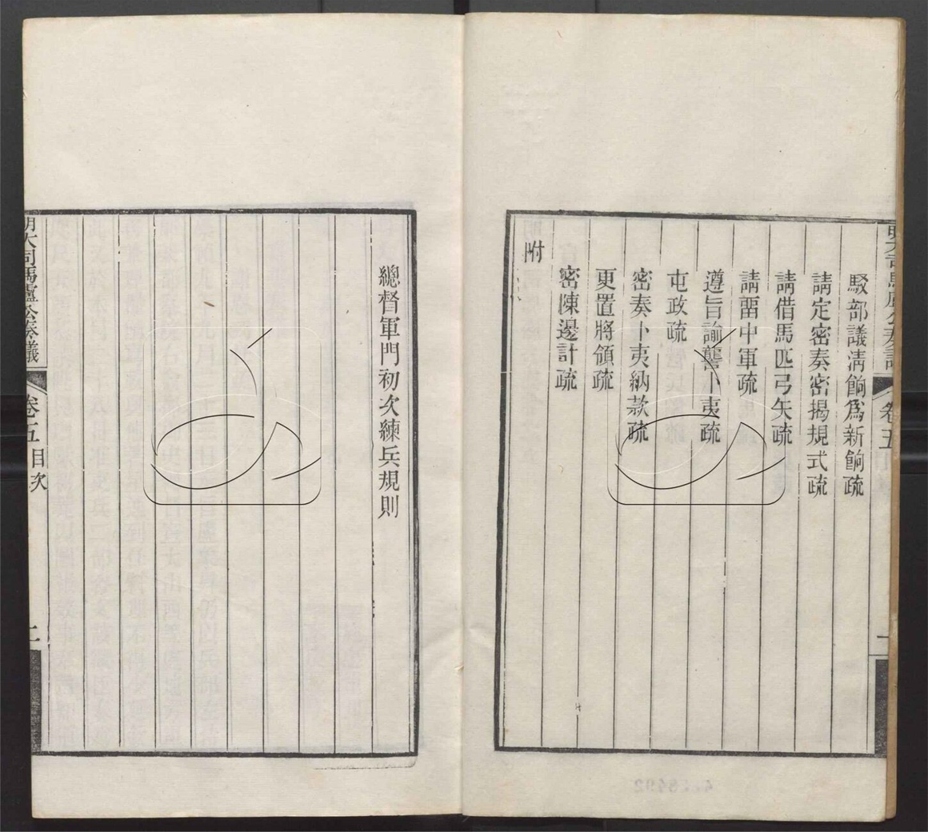 駁部議清餉爲新餉疏
請定密奏密揭規式疏
請借馬匹弓矢疏
請畱中軍疏
遵旨諭讋卜夷疏
屯政疏
密奏卜夷納款疏
更置將領疏
密陳邊計疏
附
總督軍門初次練兵規則
明大司馬盧公奏議
卷五目次
二